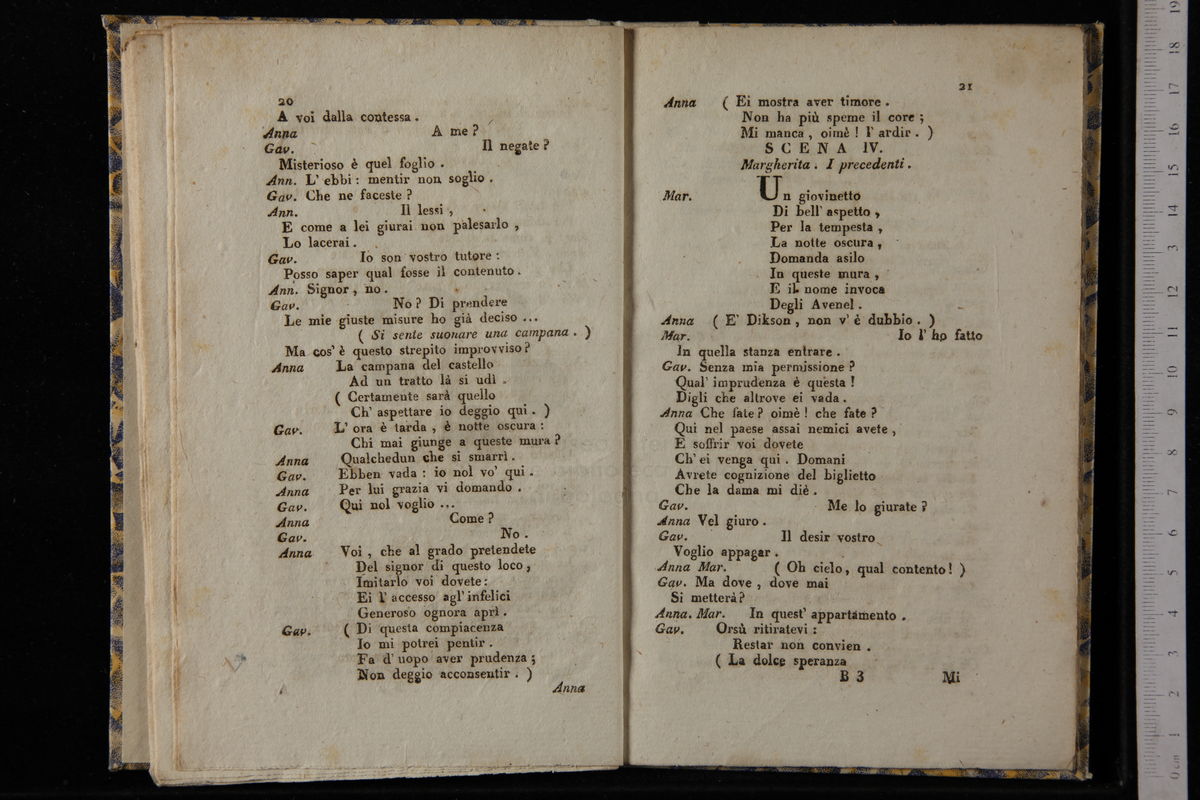 20
A voi dalla contessa .
Anna A me ?
Gav. Il negate ?
Misterioso è quel foglio .
Ann. L' ebbi : mentir non soglio .
Gav. Che ne faceste ?
Ann. Il lessi ,
E come a lei giurai non palesarlo ,
Lo lacerai .
Gav. Io son vostro tutore :
Posso saper qual fosse il contenuto .
Ann. Signor , no .
Gav. No ? Di prendere
Le mie giuste misure ho già deciso ...
( Si sente suonare una campana . )
Ma cos' è questo strepito improvviso ?
Anna La campana del castello
Ad un tratto là si udì .
( Certamente sarà quello
Ch' aspettare io deggio qui . )
Gav. L' ora è tarda , è notte oscura :
Chi mai giunge a queste mura ?
Anna Qualchedun che si smarrì .
Gav. Ebben vada : io nol vo' qui .
Anna Per lui grazia vi domando .
Gav. Qui nol voglio ...
Anna Come ?
Gav. No .
Anna Voi , che al grado pretendete
Del signor di questo loco ,
Imitarlo voi dovete :
Ei l' accesso agl' infelici
Generoso ognora aprì .
Gav. ( Di questa compiacenza
Io mi potrei pentir .
Fa d' uopo aver prudenza ;
Non deggio acconsentir . )
Anna
21
Anna ( Ei mostra aver timore .
Non ha più speme il core ;
Mi manca , oimè ! l' ardir . )
SCENA IV.
Margherita . I precedenti .
Mar. Un giovinetto
Di bell' aspetto ,
Per la tempesta ,
La notte oscura ,
Domanda asilo
In queste mura ,
E il nome invoca
Degli Avenel .
Anna ( E' Dikson , non v' è dubbio . )
Mar. Io l' ho fatto
In quella stanza entrare .
Gav. Senza mia permissione ?
Qual' imprudenza è questa !
Digli che altrove ei vada .
Anna Che fate ? oimè ! che fate ?
Qui nel paese assai nemici avete ,
E soffrir voi dovete
Ch' ei venga qui . Domani
Avrete cognizione del biglietto
Che la dama mi diè .
Gav. Me lo giurate ?
Anna Vel giuro .
Gav. Il desir vostro
Voglio appagar .
Anna Mar. ( Oh cielo , qual contento ! )
Gav. Ma dove , dove mai
Si metterà ?
Anna. Mar. In quest' appartamento .
Gav. Orsù ritiratevi :
Restar non convien .
( La dolce speranza
B 3 Mi